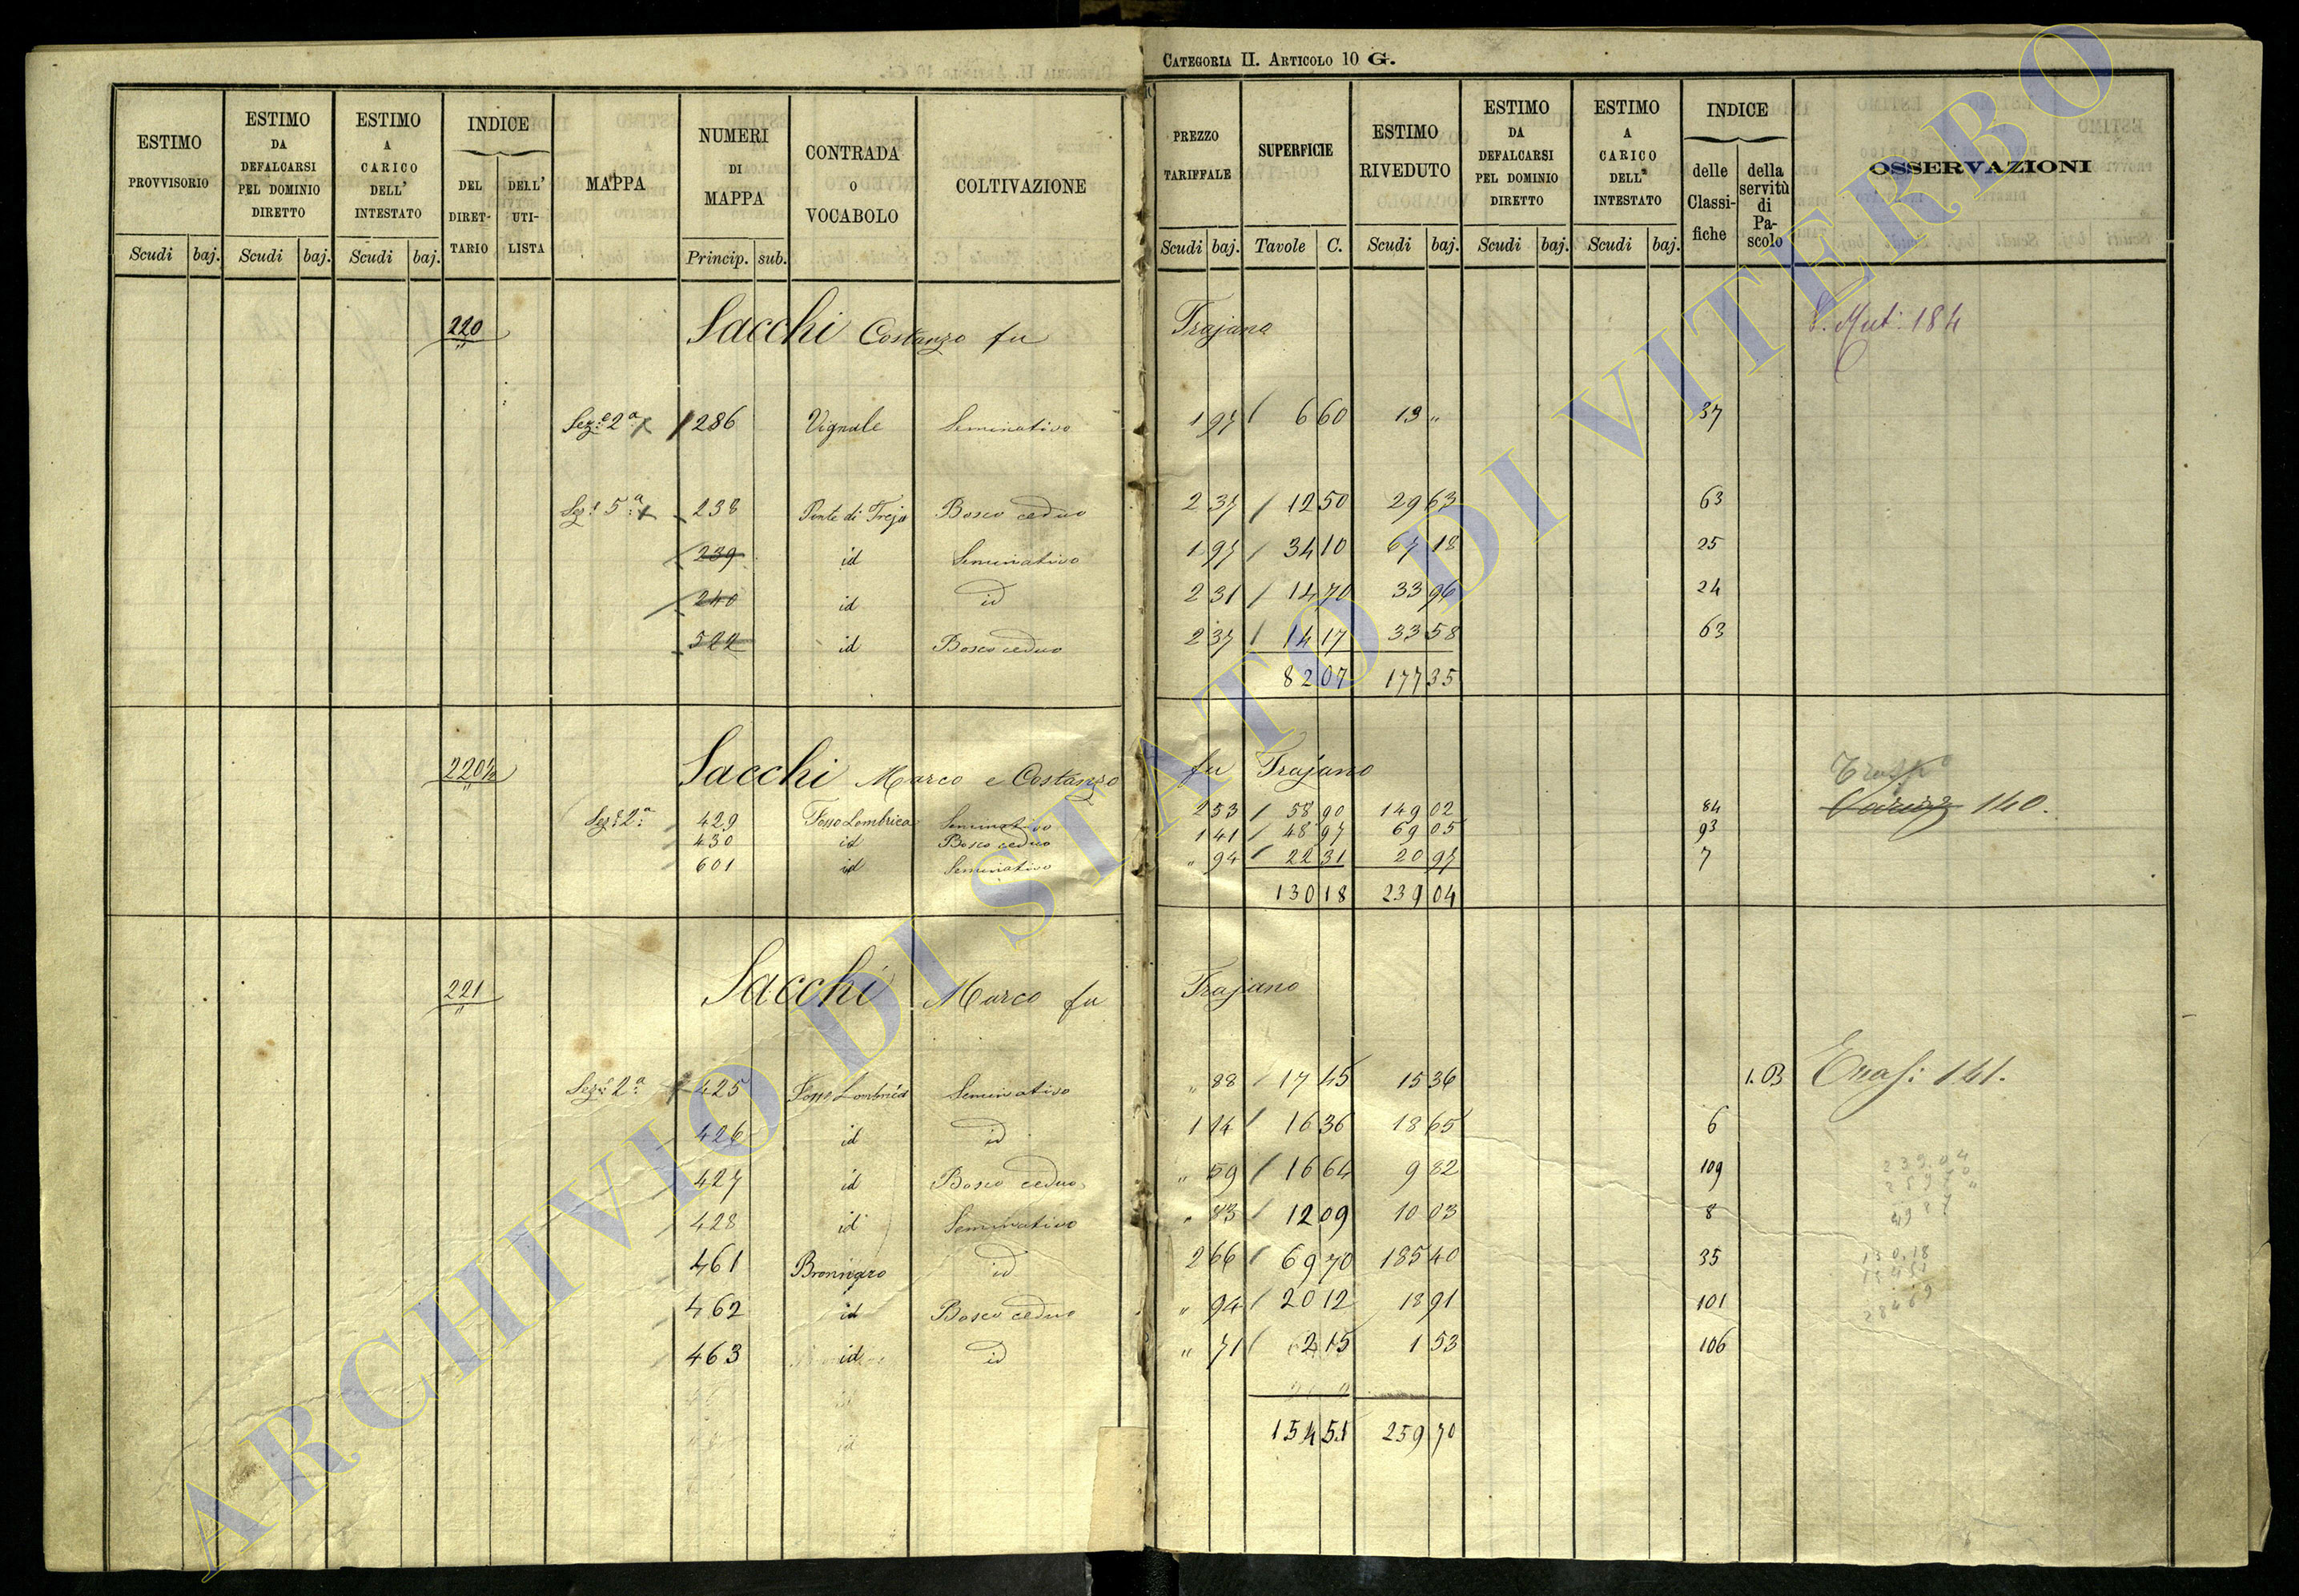 CATEGORIA II. ARTICOLO 10 G.
ESTIMO PROVVISORIO Scudi baj.
ESTIMO DA DEFALCARSI PEL DOMINIO DIRETTO Scudi baj.
ESTIMO A CARICO DELL' INTESTATO Scudi baj.
INDICE DEL DIRET- TARIO DELL' UTI- LISTA
MAPPA
NUMERI DI MAPPA Princip. sub.
CONTRADA O VOCABOLO
COLTIVAZIONE
PREZZO TARIFFALE Scudi baj.
SUPERFICIE Tavole C.
ESTIMO RIVEDUTO Scudi baj.
ESTIMO DA DEFALCARSI PEL DOMINIO DIRETTO Scudi baj.
ESTIMO A CARICO DELL' INTESTATO Scudi baj.
INDICE delle Classi- fiche della servitù di Pa- scolo
OSSERVAZIONI
220 Sacchi Costanzo fu Trajano 184
Sez.e 2a 286 Vignale Seminativo 1 97 6 60 13 " 37
Sez.e 5a 238 Ponte di Treja Bosco ceduo 2 37 12 50 29 63 63
239 id Seminativo 1 97 34 10 67 18 25
240 id id 2 31 14 70 33 96 24
522 id Bosco ceduo 2 37 14 17 33 58 63
82 07 177 35
220½ Sacchi Marco e Costanzo fu Trajano
140.
Sez.e 2a 429 Fosso Lombrica Seminativo 2 53 58 90 149 02 84
430 id Bosco ceduo 1 41 48 97 69 05 93
601 id Seminativo " 94 22 31 20 97 7
130 18 239 04
221 Sacchi Marco fu Trajano
Sez.e 2a 425 Fosso Lombrica Seminativo " 88 17 45 15 36 1. B 141.
426 id id 1 14 16 36 18 65 6
427 id Bosco ceduo " 59 16 64 9 82 109
428 id Seminativo " 83 12 09 10 03 8
461 id 2 66 69 70 185 40 35
462 id Bosco ceduo " 94 20 12 18 91 101
463 id id " 71 2 15 1 53 106
154 51 259 70
239.04
130.18
284 69
ARCHIVIO DI STATO DI VITERBO